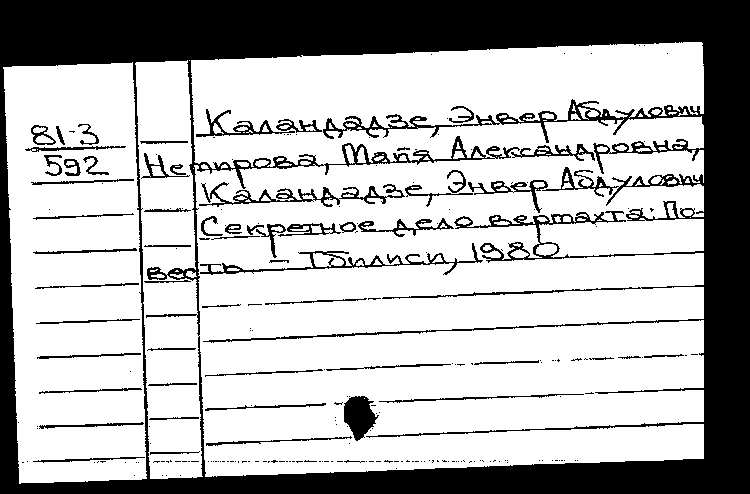 Каландадзе, Энвер Абдулович
81-3
592
Немирова, Майя Александровна,
Каландадзе, Энвер Абдулович
Секретное дело вертахта: По-
весть - Тбилиси, 1980